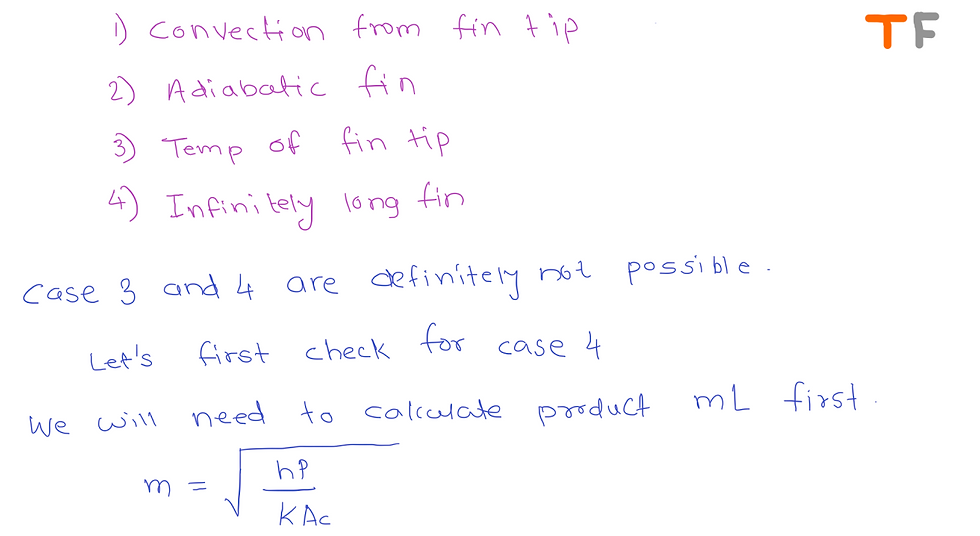 TF
1) Convection from fin tip
2) Adiabatic fin
3) Temp of fin tip
4) Infinitely long fin
Case 3 and 4 are definitely not possible.
Let's first check for case 4
We will need to calculate product mL first.
m = √(hP / KAc)